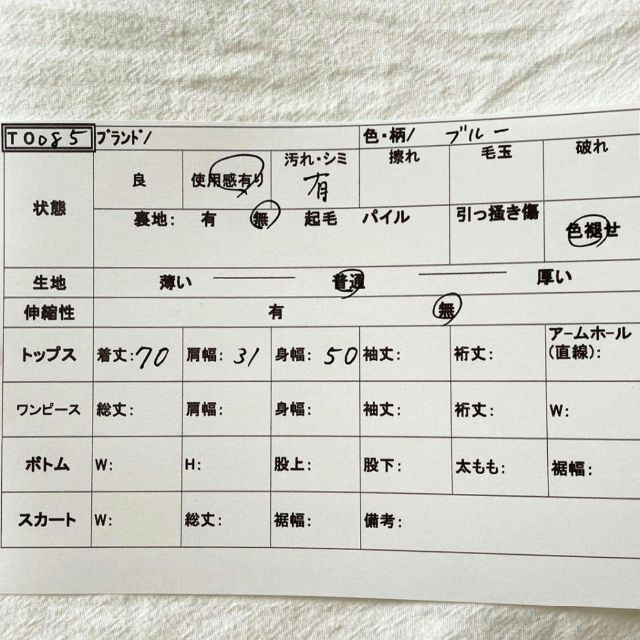 T0085 ブランド/ 色・柄/ ブルー
状態 良 使用感有り 汚れ・シミ 有 擦れ 毛玉 破れ
裏地: 有 無 起毛 パイル 引っ掻き傷 色褪せ
生地 薄い 普通 厚い
伸縮性 有 無
トップス 着丈:70 肩幅: 31 身幅: 50 袖丈: 裄丈: アームホール(直線):
ワンピース 総丈: 肩幅: 身幅: 袖丈: 裄丈: W:
ボトム W: H: 股上: 股下: 太もも: 裾幅:
スカート W: 総丈: 裾幅: 備考: